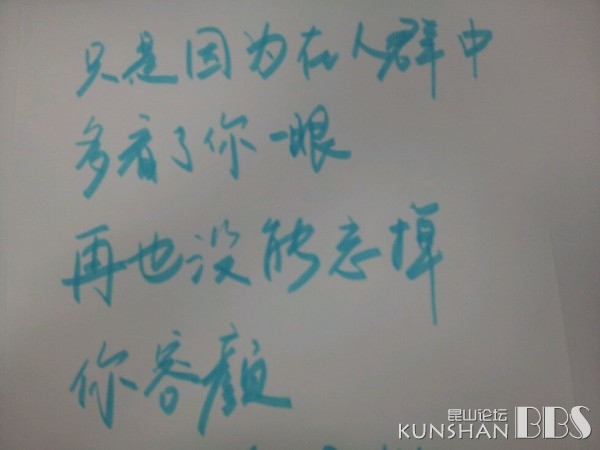 只是因为在人群中
多看了你一眼
再也没能忘掉
你容颜
昆山论坛
KUNSHAN BBS